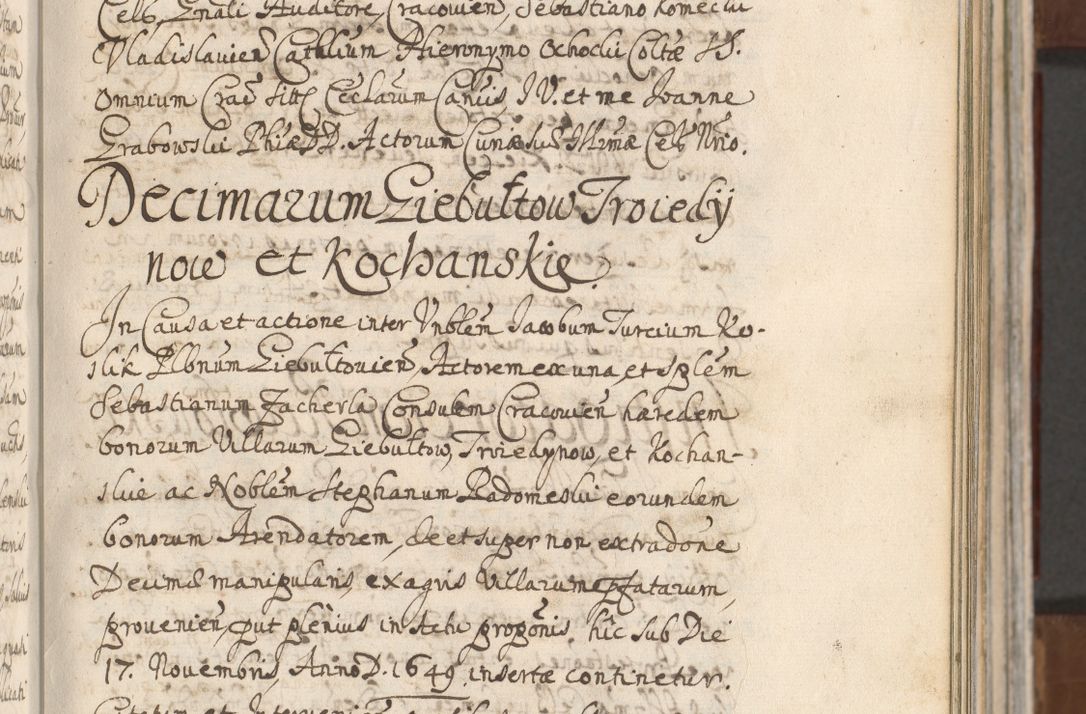 Celš, Gnali Auditore, Cracovien̄, Sebastiano Komecki
Vladislavien̄ Cathlium Hieronymo Ochocki Coltæ SS.
Omnium Crac̄ Ecclarum Can̄cis, I.V. et me Joanne
Grabowski Phiæ D. Actorum Curiæ Suæ Illmæ Cels Nrio.
Decimarum Giebułtow Troiedÿ
now et Kochanskie.
In Causa et actione inter Vnblem̄ Jacobum Turcium Ko-
slik Plbnum Giebułtovien̄, Actorem ex una, et Splem̄
Sebastianum Zacherla Consulem Cracovien̄ hæredem
bonorum Villarum Giebultow, Troiedynow, et Kochan-
skie ac Noblem̄ Stephanum Radomeski eorundem
bonorum Arendatorem, de et super non extradōne
Decimæ manipularis, ex agris Villarum pfatarum,
provenien̄, put plenius in Actu propōnis, hîc sub Die
17. Novembris, Anno D. 1649. insertæ continetur.